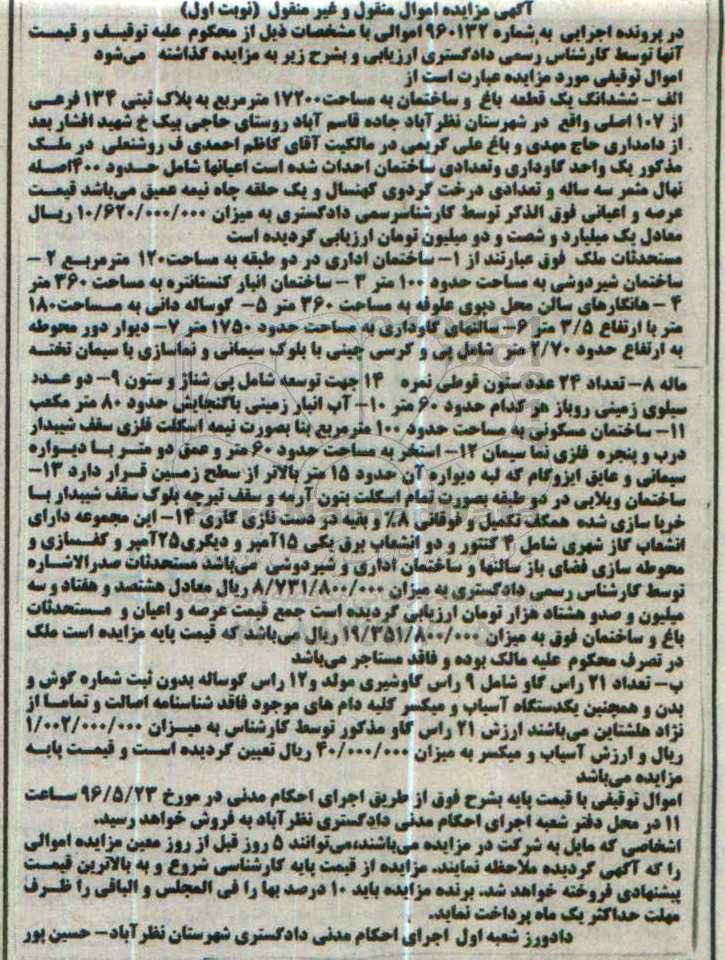 آگهی مزایده اموال منقول و غیر منقول (نوبت اول)
در پرونده اجرایی به شماره ۹۶۰۱۳۲ اموالی با مشخصات ذیل از محکوم علیه توقیف و قیمت
آنها توسط کارشناس رسمی دادگستری ارزیابی و بشرح زیر به مزایده گذاشته می‌شود
اموال توقیفی مورد مزایده عبارت است از
الف – ششدانگ یک قطعه باغ و ساختمان به مساحت ۱۷۲۰۰ مترمربع به پلاک ثبتی ۱۳۴ فرعی
از ۱۰۷ اصلی واقع در شهرستان نظرآباد جاده قاسم آباد روستای حاجی بیک خ شهید افشار بعد
از دامداری حاج مهدی و باغ علی کریمی در مالکیت آقای کاظم احمدی ف روشنعلی در ملک
مذکور یک واحد گاوداری وتعدادی ساختمان احداث شده است اعیانها شامل حدود ۴۰۰اصله
نهال مثمر سه ساله و تعدادی درخت گردوی کهنسال و یک حلقه چاه نیمه عمیق می‌باشد قیمت
عرصه و اعیانی فوق الذکر توسط کارشناسرسمی دادگستری به میزان ۱۰/۶۲۰/۰۰۰/۰۰۰ ریال
معادل یک میلیارد و شصت و دو میلیون تومان ارزیابی گردیده است
مستحدثات ملک فوق عبارتند از ۱– ساختمان اداری در دو طبقه به مساحت۱۲۰ مترمربع ۲ –
ساختمان شیردوشی به مساحت حدود ۱۰۰ متر ۳ – ساختمان انبار کنستانتره به مساحت ۳۶۰ متر
۴ – هانگارهای سالن محل دپوی علوفه به مساحت ۳۶۰ متر ۵– گوساله دانی به مساحت۱۸۰
متر با ارتفاع ۳/۵ متر ۶– سالنهای گاوداری به مساحت حدود ۱۷۵۰ متر ۷– دیوار دور محوطه
به ارتفاع حدود ۲/۷۰ متر شامل پی و کرسی چینی با بلوک سیمانی و نماسازی با سیمان تخته
ماله ۸– تعداد ۲۴ عدد ستون قوطی نمره ۱۴ جهت توسعه شامل پی شناژ و ستون ۹– دو عدد
سیلوی زمینی روباز هر کدام حدود ۶۰ متر ۱۰– آب انبار زمینی باگنجایش حدود ۸۰ متر مکعب
۱۱– ساختمان مسکونی به مساحت حدود ۱۰۰ مترمربع بنا بصورت نیمه اسکلت فلزی سقف شیبدار
درب و پنجره فلزی نما سیمان ۱۲– استخر به مساحت حدود ۶۰ متر و عمق دو متر با دیواره
سیمانی و عایق ایزوگام که لبه دیواره آن حدود ۱۵ متر بالاتر از سطح زمین قرار دارد ۱۳–
ساختمان ویلایی در دو طبقه بصورت تمام اسکلت بتون آرمه و سقف تیرچه بلوک سقف شیبدار با
خرپا سازی شده همکف تکمیل و فوقانی ۸٪ و بقیه در دست نازی کاری ۱۴– این مجموعه دارای
انشعاب گاز شهری شامل ۴ کنتور و دو انشعاب برق یکی ۱۵آمپر و دیگری۲۵آمپر و کفسازی و
محوطه سازی فضای باز سالنها و ساختمان اداری و شیردوشی می‌باشد مستحدثات صدرالاشاره
توسط کارشناس رسمی دادگستری به میزان ۸/۷۳۱/۸۰۰/۰۰۰ ریال معادل هشتصد و هفتاد و سه
میلیون و صدو هشتاد هزار تومان ارزیابی گردیده است جمع قیمت عرصه و اعیان و مستحدثات
باغ و ساختمان فوق به میزان ۱۹/۳۵۱/۸۰۰/۰۰۰ ریال می‌باشد که قیمت پایه مزایده است ملک
در تصرف محکوم علیه مالک بوده و فاقد مستاجر می‌باشد
ب– تعداد ۲۱ راس گاو شامل ۹ راس گاوشیری مولد و۱۲ راس گوساله بدون ثبت شماره گوش و
بدن و همچنین یکدستگاه آسیاب و میکسر کلیه دام های موجود فاقد شناسنامه اصالت و تماما از
نژاد هلشتاین می‌باشند ارزش ۲۱ راس گاو مذکور توسط کارشناس به میزان ۱/۰۰۲/۰۰۰/۰۰۰
ریال و ارزش آسیاب و میکسر به میزان ۴۰/۰۰۰/۰۰۰ ریال تعیین گردیده است و قیمت پایه
مزایده می‌باشد
اموال توقیفی با قیمت پایه بشرح فوق از طریق اجرای احکام مدنی در مورخ ۹۶/۵/۲۳ ساعت
۱۱ در محل دفتر شعبه اجرای احکام مدنی دادگستری نظرآباد به فروش خواهد رسید.
اشخاصی که مایل به شرکت در مزایده می‌باشند،می‌توانند ۵ روز قبل از روز معین مزایده اموالی
را که آگهی گردیده ملاحظه نمایند. مزایده از قیمت پایه کارشناسی شروع و به بالاترین قیمت
پیشنهادی فروخته خواهد شد. برنده مزایده باید ۱۰ درصد بها را فی المجلس و الباقی را ظرف
مهلت حداکثر یک ماه پرداخت نماید.
دادورز شعبه اول اجرای احکام مدنی دادگستری شهرستان نظرآباد– حسین پور